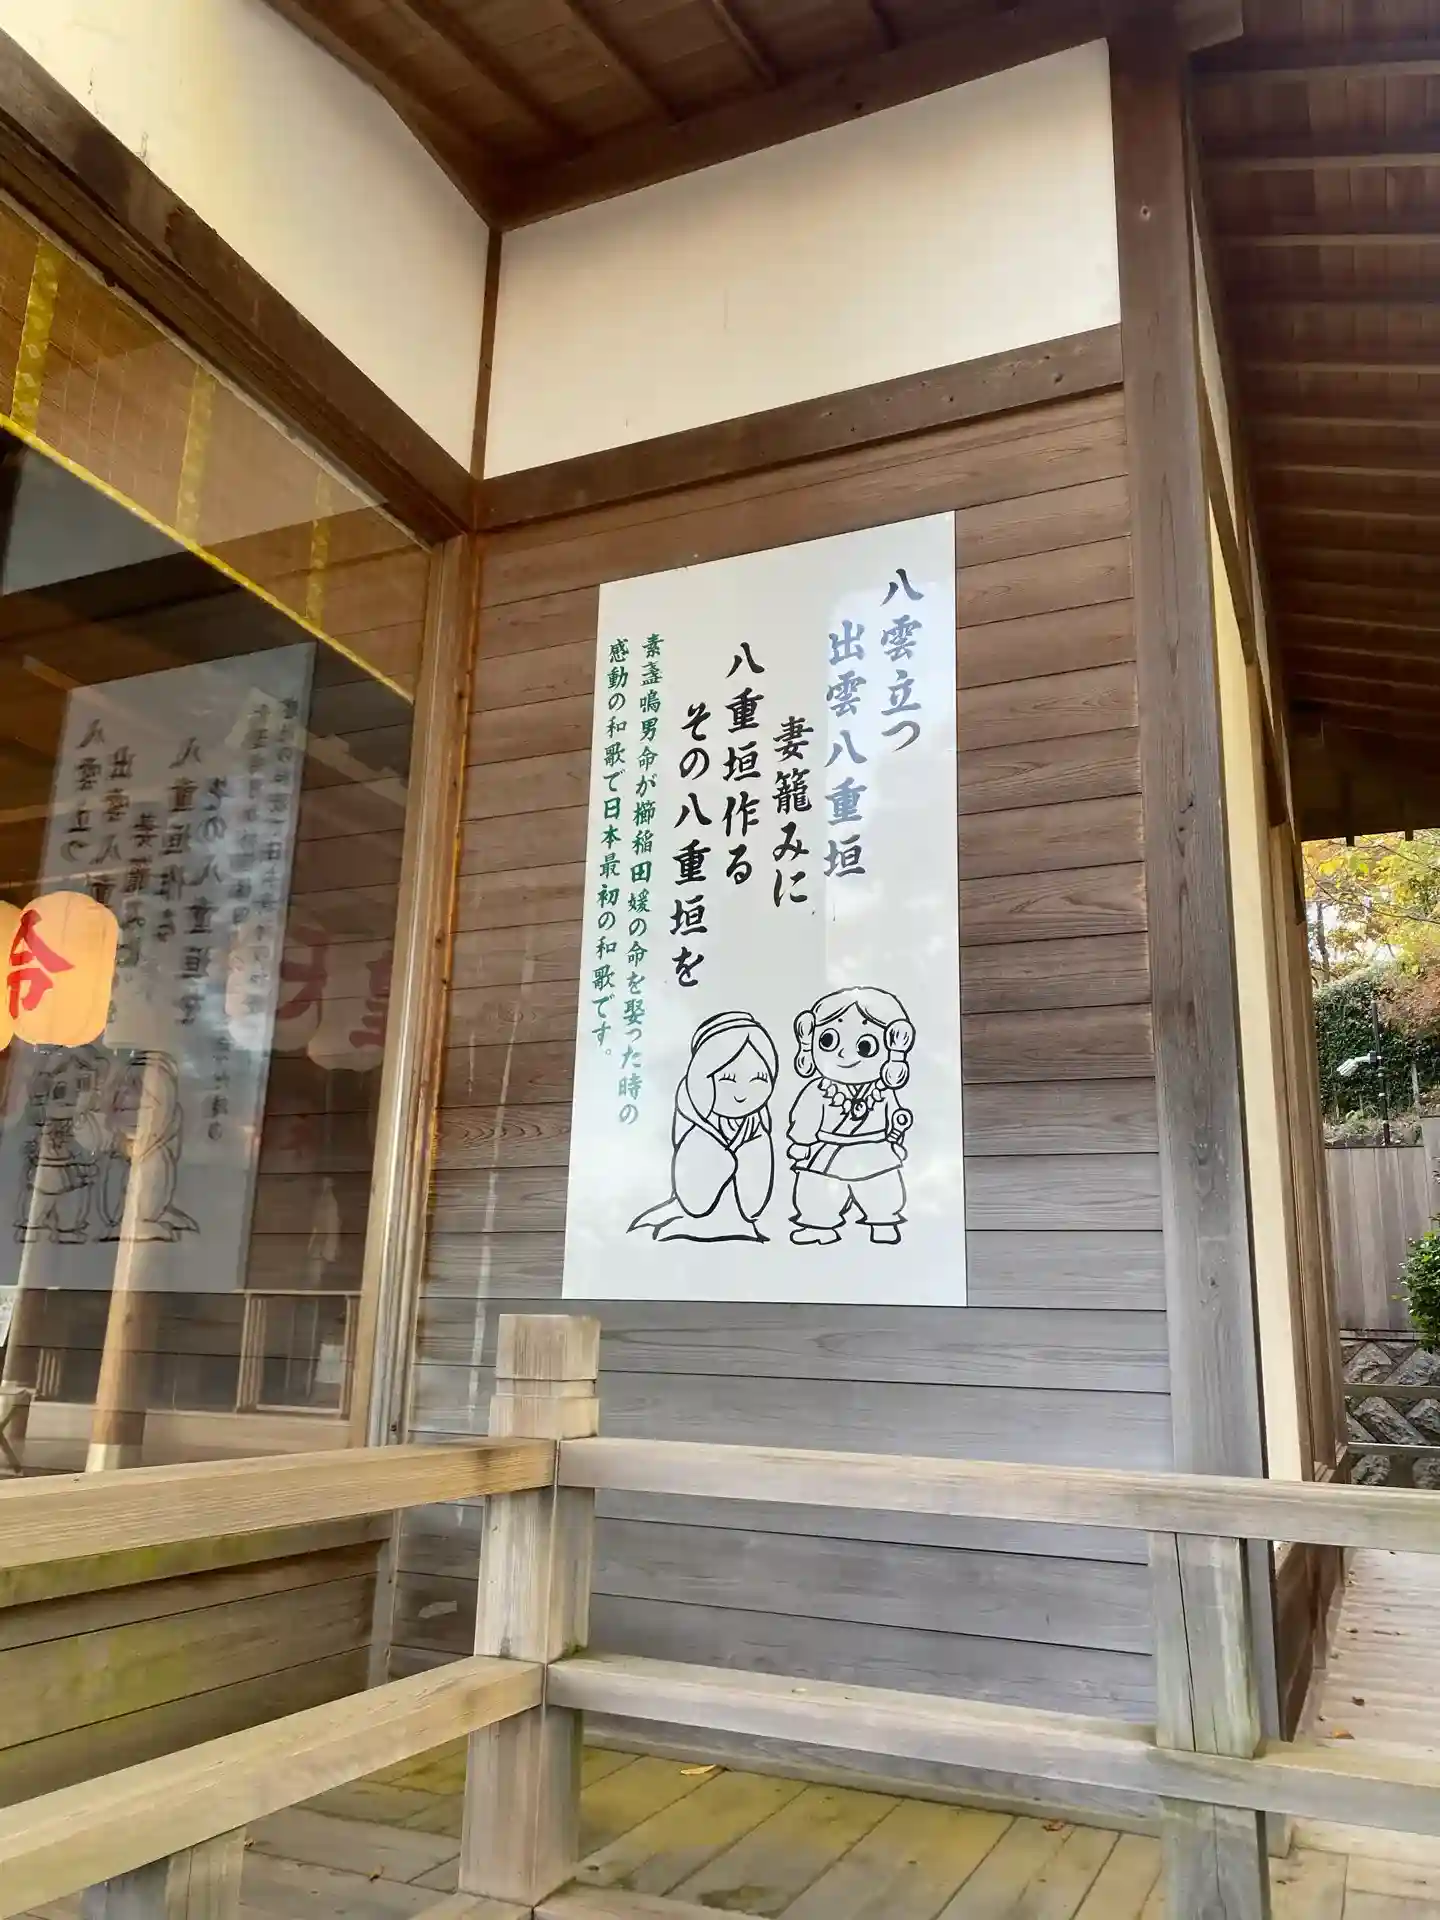 八雲立つ
出雲八重垣
妻籠みに
八重垣作る
その八重垣を
素盞嗚男命が櫛稲田媛の命を娶った時の
感動の和歌で日本最初の和歌です。
命